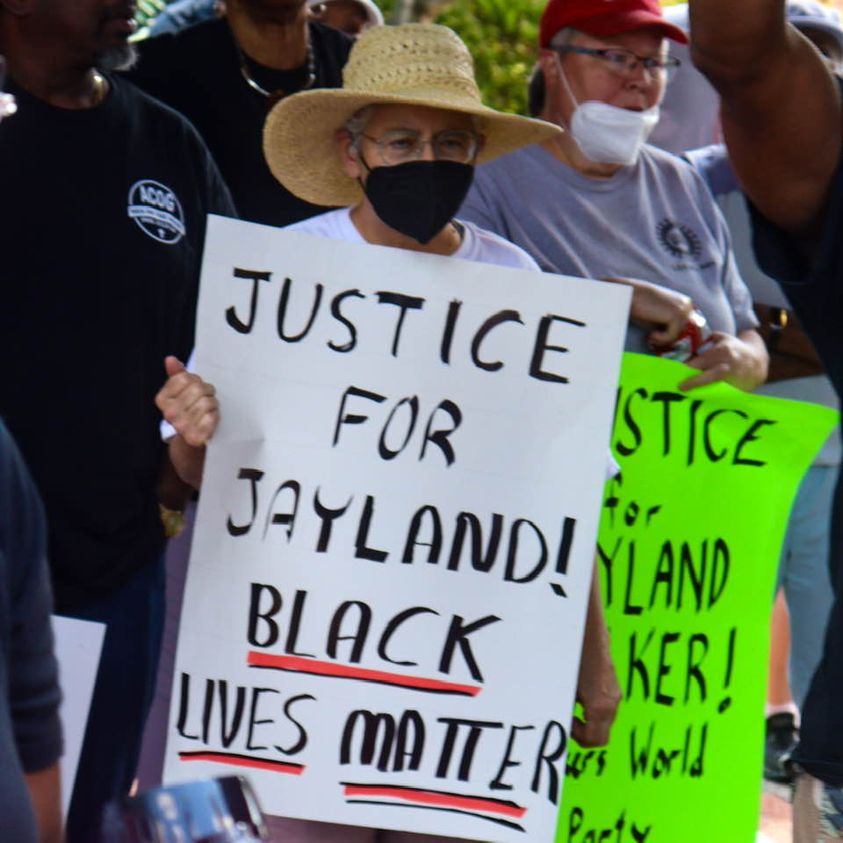 ACOG
JUSTICE
FOR
JAYLAND!
BLACK
LIVES MATTER
STICE
for
YLAND
KER!
ers World
Party